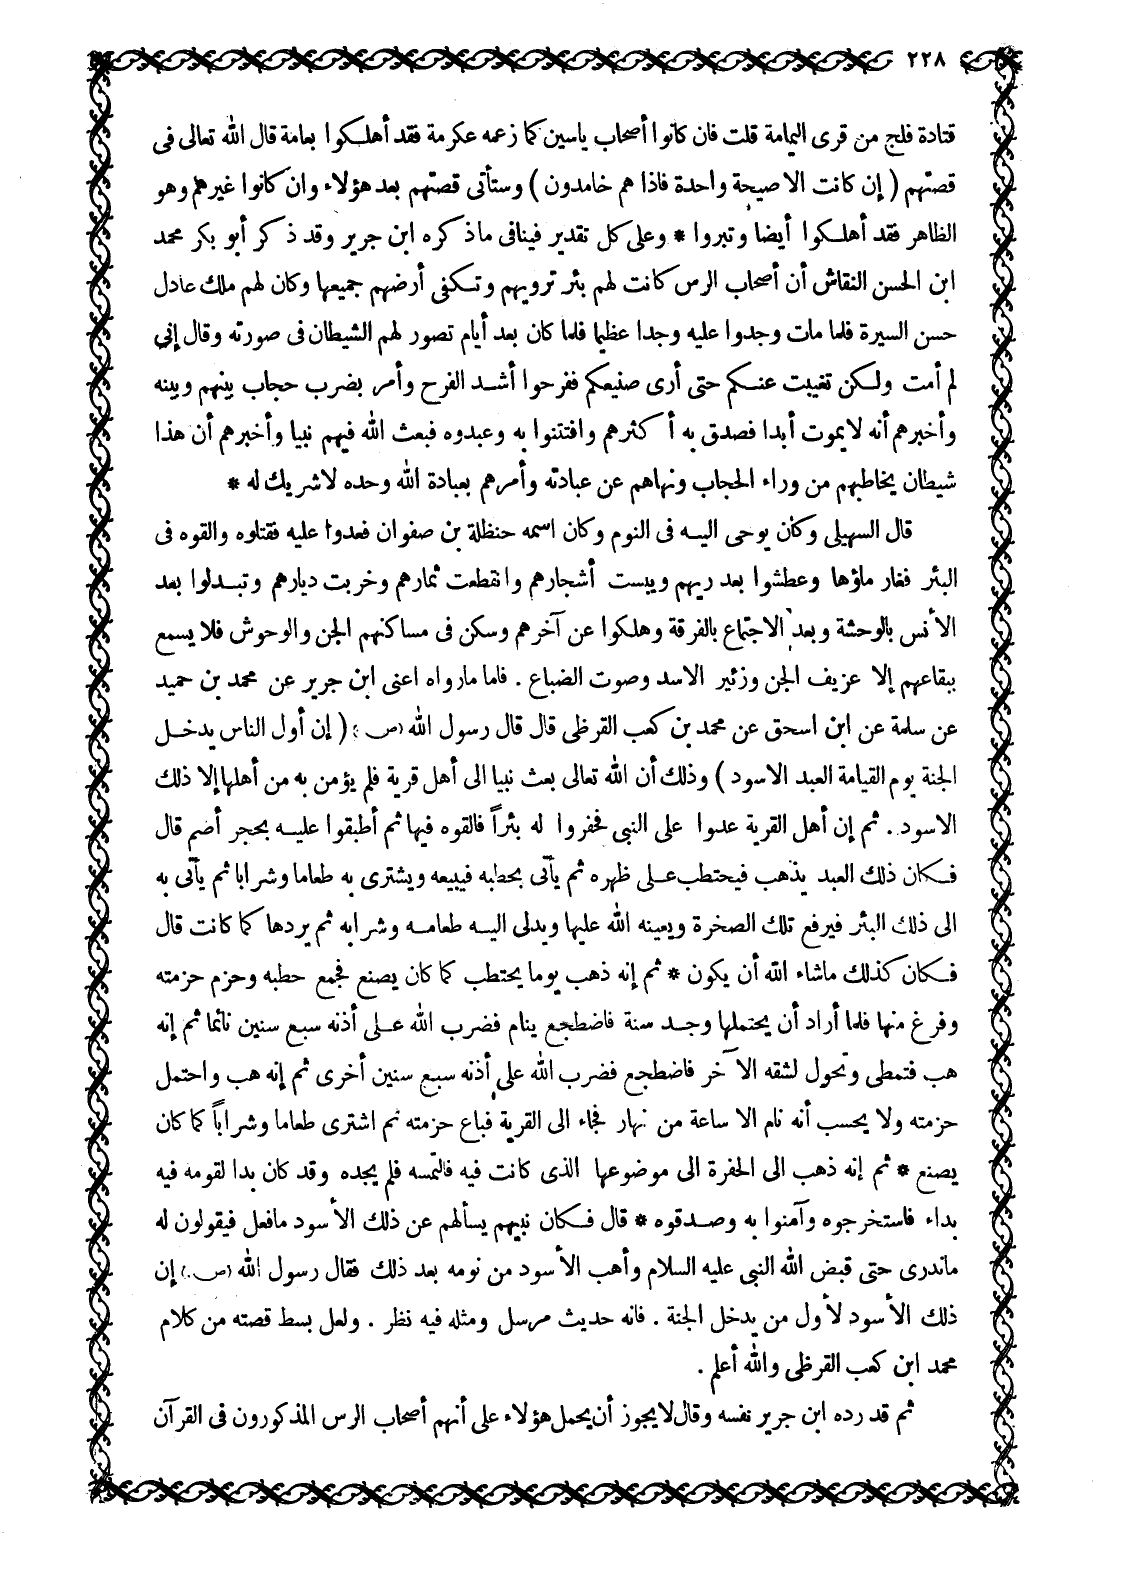 ٢٢٨
قتادة فلج من قرى اليمامة قلت فان كانوا أصحاب ياسين كما زعمه عكرمة فقد أهلكوا بعامة قال الله تعالى فى
قصتهم ( إن كانت الا صيحة واحدة فاذا هم خامدون ) وستأتى قصتهم بعد هؤلاء وان كانوا غيرهم وهو
الظاهر فقد أهلكوا أيضا وتبروا * وعلى كل تقدير فينافى ما ذكره ابن جرير وقد ذكر أبو بكر محمد
ابن الحسن النقاش أن أصحاب الرس كانت لهم بئر ترويهم وتكفى أرضهم جميعها وكان لهم ملك عادل
حسن السيرة فلما مات وجدوا عليه وجدا عظيما فلما كان بعد أيام تصور لهم الشيطان فى صورته وقال إنى
لم أمت ولكن تغيبت عنكم حتى أرى صنيعكم ففرحوا أشد الفرح وأمر بضرب حجاب بينهم وبينه
وأخبرهم أنه لا يموت أبدا فصدق به أكثرهم وافتتنوا به وعبدوه فبعث الله فيهم نبيا وأخبرهم أن هذا
شيطان يخاطبهم من وراء الحجاب ونهاهم عن عبادته وأمرهم بعبادة الله وحده لا شريك له *
قال السهيلى وكان يوحى اليه فى النوم وكان اسمه حنظلة بن صفوان فعدوا عليه فقتلوه والقوه فى
البئر فغار ماؤها وعطشوا بعد ريهم ويبست أشجارهم وانقطعت ثمارهم وخربت ديارهم وتبدلوا بعد
الأنس بالوحشة وبعد الاجتماع بالفرقة وهلكوا عن آخرهم وسكن فى مساكنهم الجن والوحوش فلا يسمع
ببقاعهم إلا عزيف الجن وزئير الاسد وصوت الضباع . فاما ما رواه اعنى ابن جرير عن محمد بن حميد
عن سلمة عن ابن اسحق عن محمد بن كعب القرظى قال قال رسول الله (ص.) ( إن أول الناس يدخل
الجنة يوم القيامة العبد الاسود ) وذلك أن الله تعالى بعث نبيا الى أهل قرية فلم يؤمن به من أهلها إلا ذلك
الاسود. ثم إن أهل القرية عدوا على النبى فحفروا له بئراً فالقوه فيها ثم أطبقوا عليه بحجر أصم قال
فكان ذلك العبد يذهب فيحتطب على ظهره ثم يأتى بحطبه فيبيعه ويشترى به طعاما وشرابا ثم يأتى به
الى ذلك البئر فيرفع تلك الصخرة ويعينه الله عليها ويدلى اليه طعامه وشرابه ثم يردها كما كانت قال
فكان كذلك ماشاء الله أن يكون * ثم إنه ذهب يوما يحتطب كما كان يصنع فجمع حطبه وحزم حزمته
وفرغ منها فلما أراد أن يحتملها وجد سنة فاضطجع ينام فضرب الله على أذنه سبع سنين نائما ثم إنه
هب فتمطى وتحول لشقه الآخر فاضطجع فضرب الله على أذنه سبع سنين أخرى ثم إنه هب واحتمل
حزمته ولا يحسب أنه نام الا ساعة من نهار فجاء الى القرية فباع حزمته ثم اشترى طعاما وشراباً كما كان
يصنع * ثم إنه ذهب الى الحفرة الى موضوعها الذى كانت فيه فالتمسه فلم يجده وقد كان بدا لقومه فيه
بداء فاستخرجوه وآمنوا به وصدقوه * قال فكان نبيهم يسألهم عن ذلك الأسود مافعل فيقولون له
ماندرى حتى قبض الله النبى عليه السلام وأهب الأسود من نومه بعد ذلك فقال رسول الله (ص.) إن
ذلك الأسود لأول من يدخل الجنة . فانه حديث مرسل ومثله فيه نظر . ولعل بسط قصته من كلام
محمد ابن كعب القرظى والله أعلم .
ثم قد رده ابن جرير نفسه وقال لا يجوز أن يحمل هؤلاء على أنهم أصحاب الرس المذكورون فى القرآن